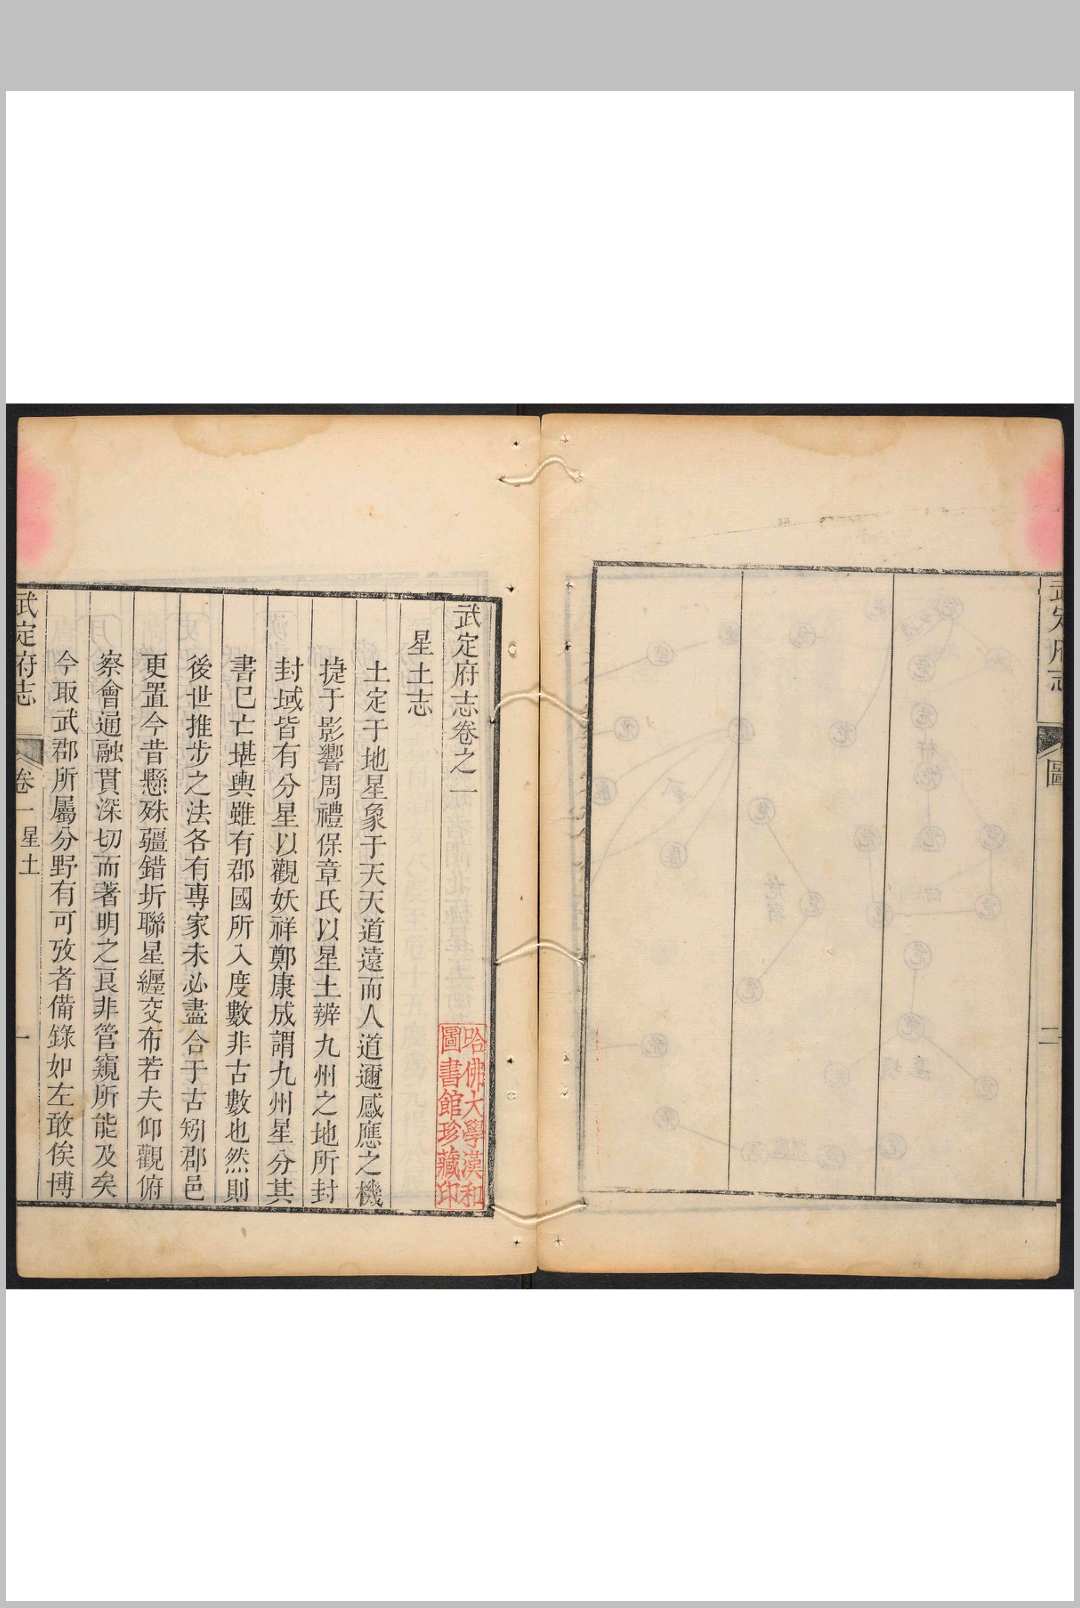 武定府志
圖
二
武定府志卷之一
星土志
土定于地星象于天天道遠而人道邇感應之機
捷于影響周禮保章氏以星土辨九州之地所封
封域皆有分星以觀妖祥鄭康成謂九州星分其
書巳亡堪輿雖有郡國所入度數非古數也然則
後世推步之法各有專家未必盡合于古矧郡邑
更置今昔懸殊疆錯圻聯星纒交布若夫仰觀俯
察會通融貫深切而著明之良非管窺所能及矣
今取武郡所屬分野有可攷者備錄如左敢俟博
武定府志
卷一
星土
一
哈佛大學漢和
圖書館珍藏印